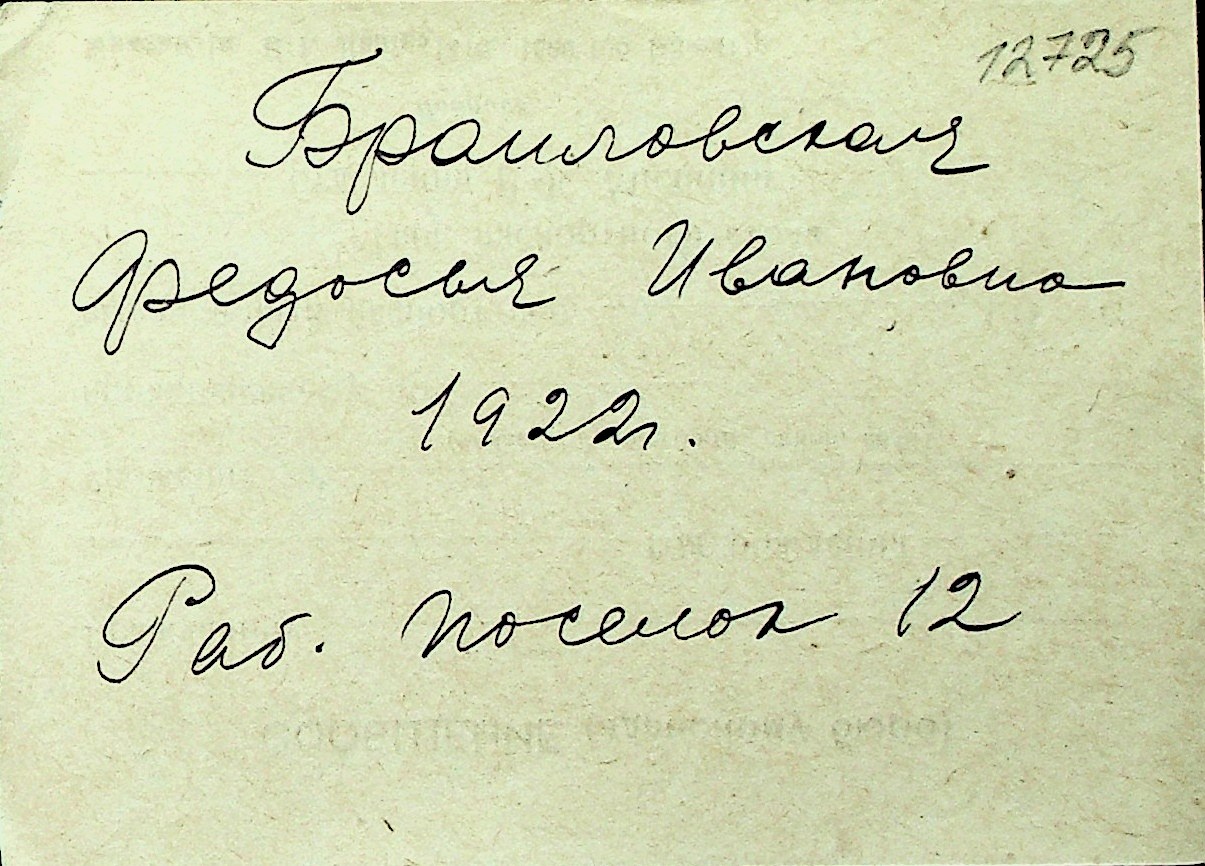 12725
Браиловская
Федосья Ивановна
1922г.
Раб. поселок 12